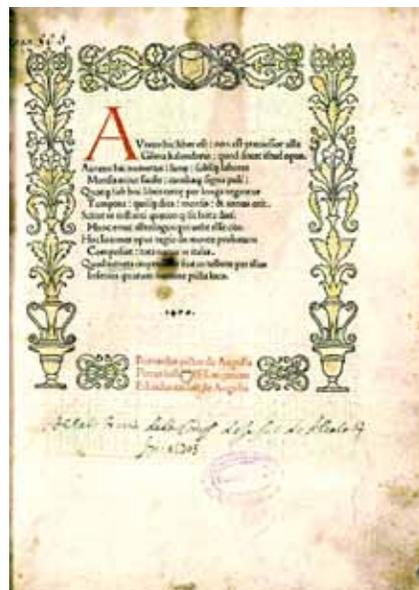 AUreus hic liber est: non est preciosior ulla
Gēma kalendario: quod docet istud opus.
Aureus hic numerus: lune: solisq; labores
Monstrantur facile: cunctaq; signa poli:
Quotq; sub hoc libro terre per longa regantur
Tempora: quisq; dies: mensis: & annus erit.
Scitur in instanti quecunq; sit hora diei.
Hunc emat astrologus qui velit esse cito.
Hoc Ioannes opus regio de monte probatum
Composuit: tota notus in italia.
Quod veneta impressum fuit in tellure per illos
Inferius quorum nomina picta loco.
1476.
Bernardus pictor de Augusta
Petrus loslein de Langencen
Erhardus ratdolt de Augusta